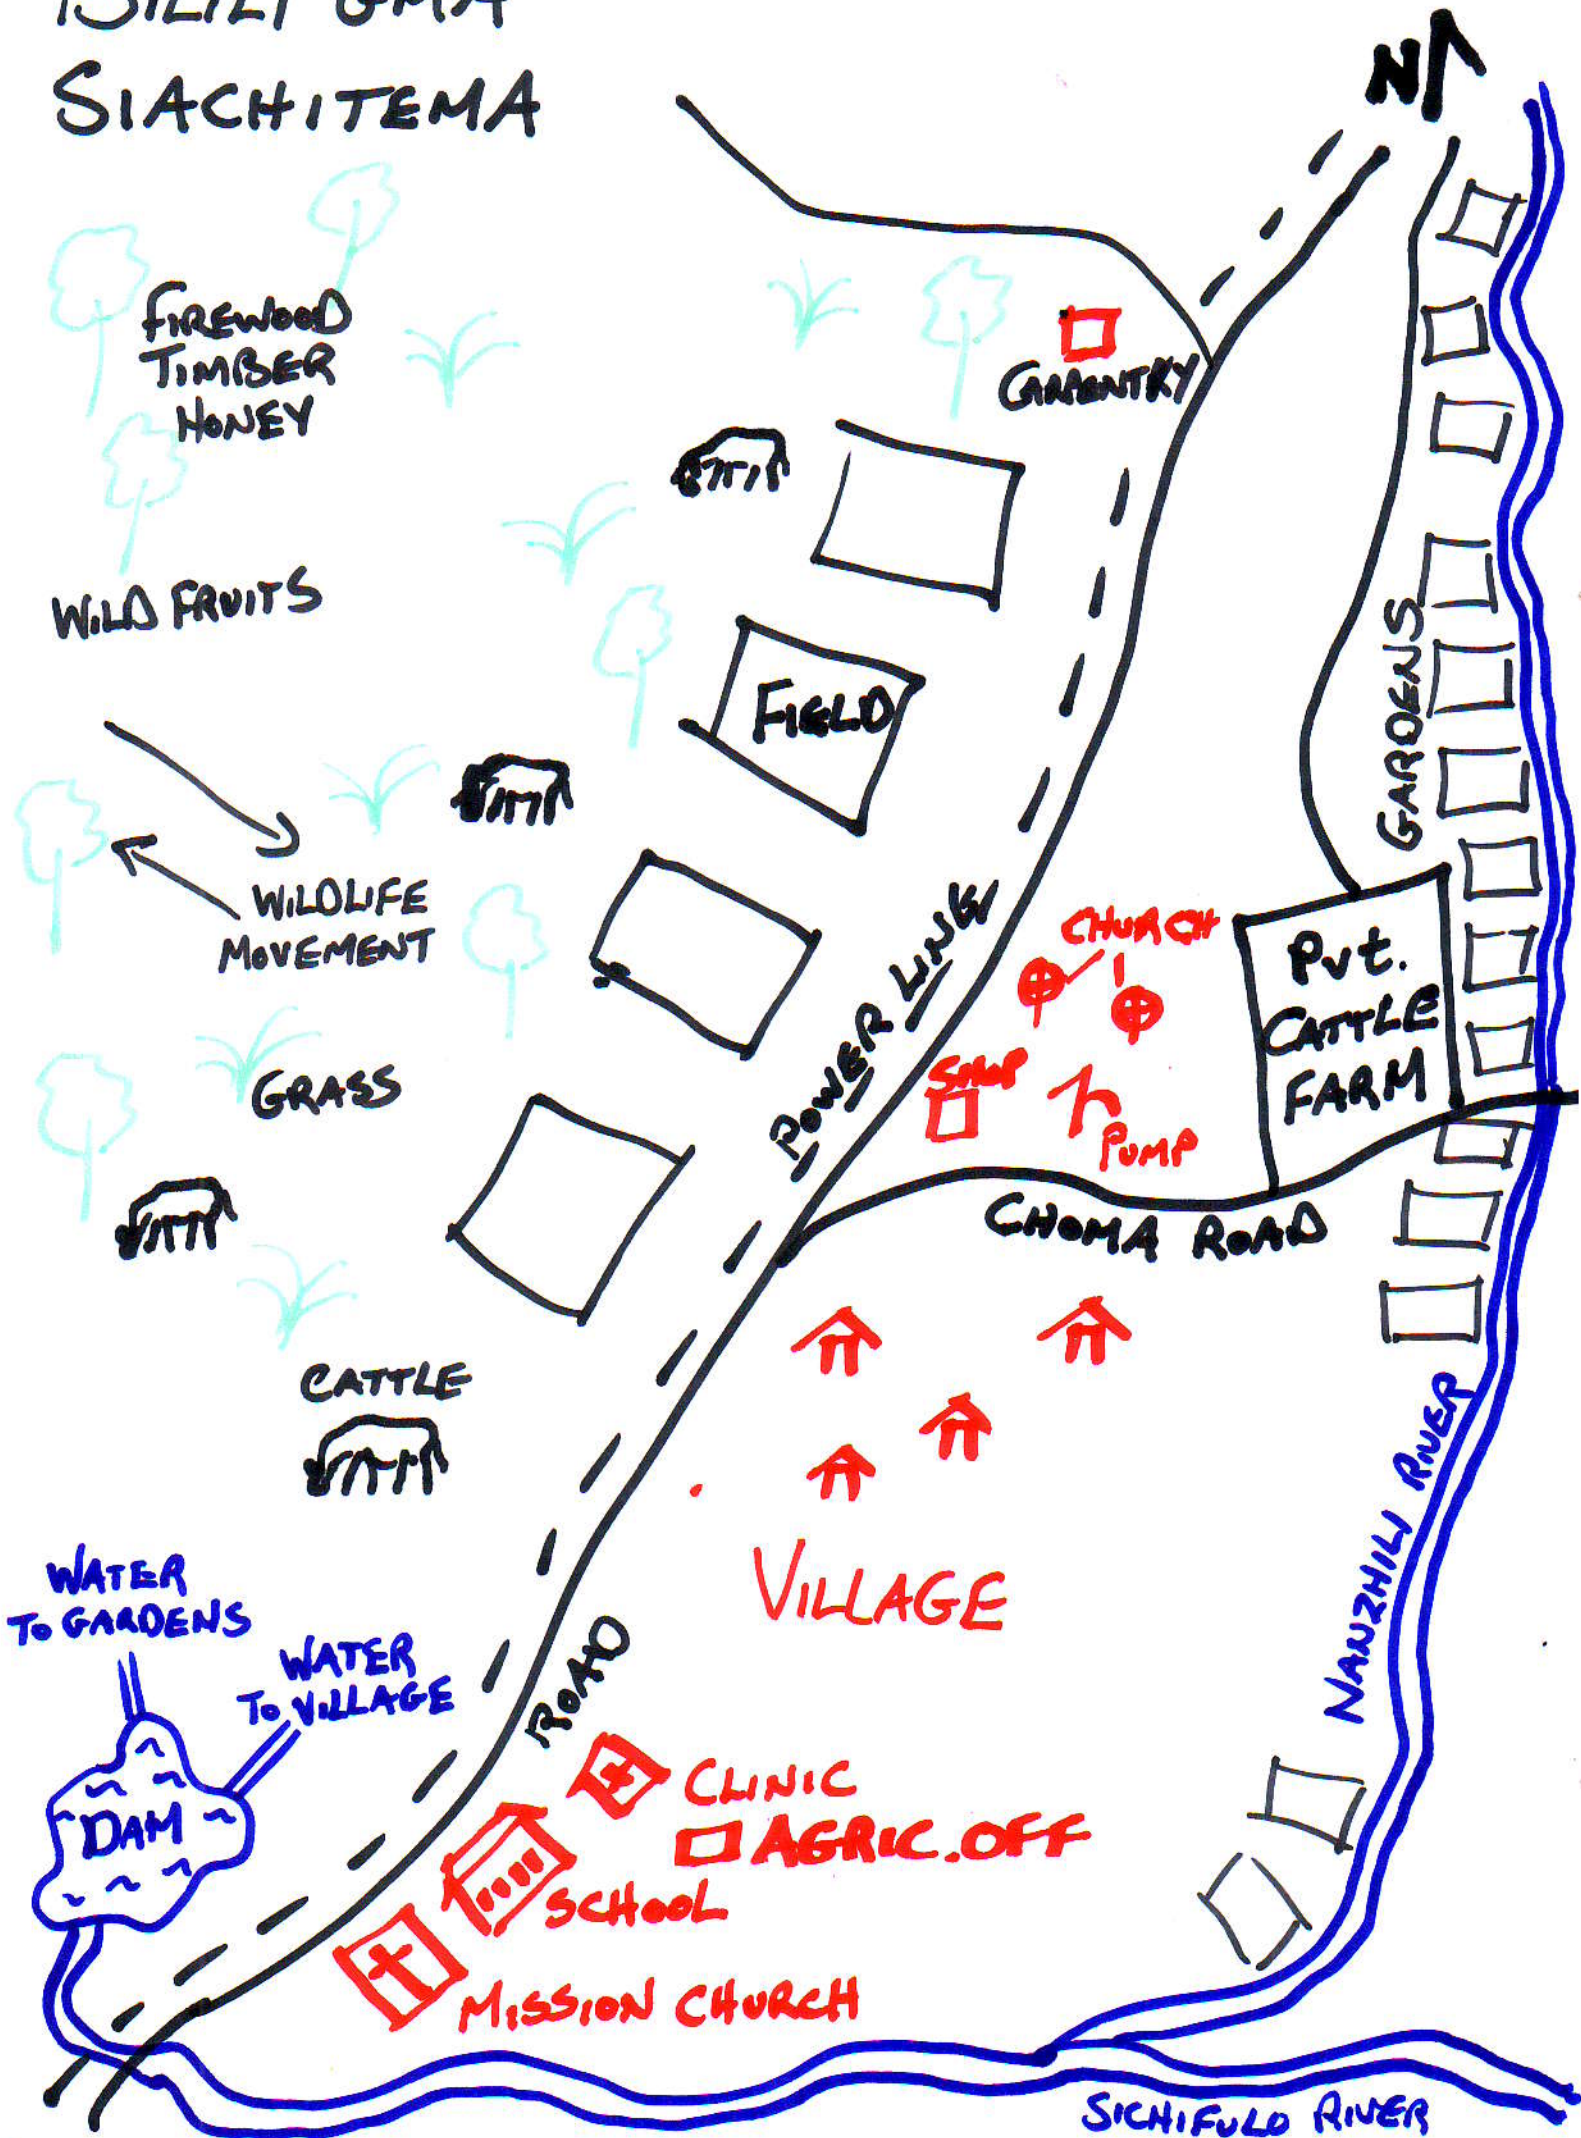 BILILI GMA
SIACHITEMA
N
FIREWOOD
TIMBER
HONEY
CARPENTRY
WILD FRUITS
FIELD
GARDENS
WILDLIFE
MOVEMENT
POWER LINE
CHURCH
Pvt.
CATTLE
FARM
SHOP
PUMP
GRASS
CHOMA ROAD
CATTLE
NANZHILI RIVER
VILLAGE
WATER
TO GARDENS
WATER
TO VILLAGE
ROAD
DAM
CLINIC
AGRIC.OFF
SCHOOL
MISSION CHURCH
SICHIFULO RIVER